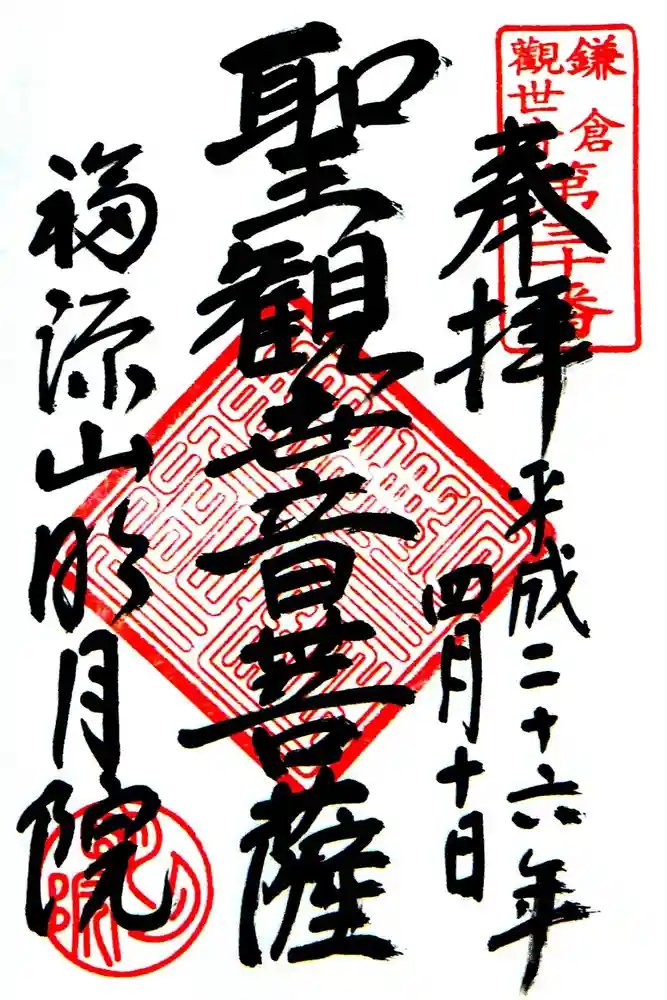 鎌倉
觀世音
第三十番
奉拝
平成二十六年
四月十日
聖観世音菩薩
福源山明月院